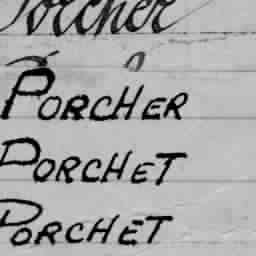 Porcher
PORCHER
PORCHET
PORCHET